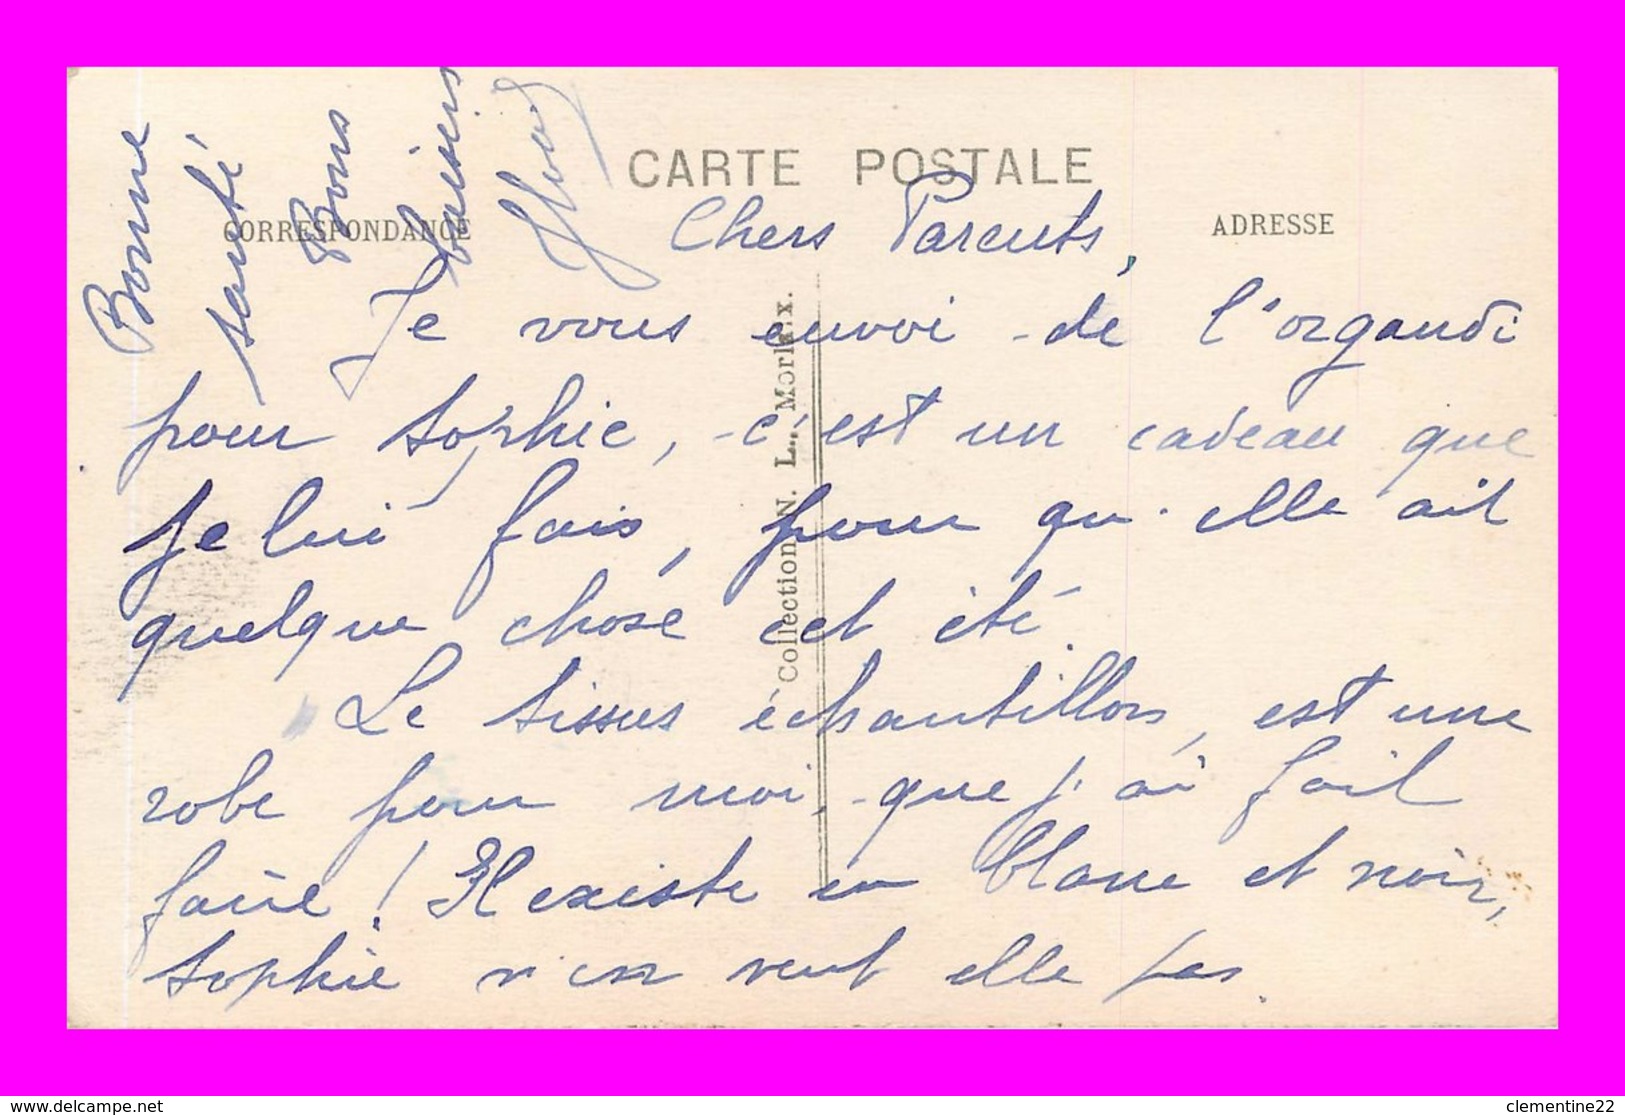 CARTE POSTALE
CORRESPONDANCE
ADRESSE
Chers Parents,
Je vous envoi de l'organdi
pour Sophie, c'est un cadeau que
je lui fais, pour qu'elle ait
quelque chose cet été.
Le tissus échantillon, est une
robe pour moi, que j'ai fait
faire ! Il existe en blanc et noir,
Sophie n'en veut elle pas.
Bonne
santé
Bons
baisers
Collection N. L., Morlaix.
www.delcampe.net
clementine22